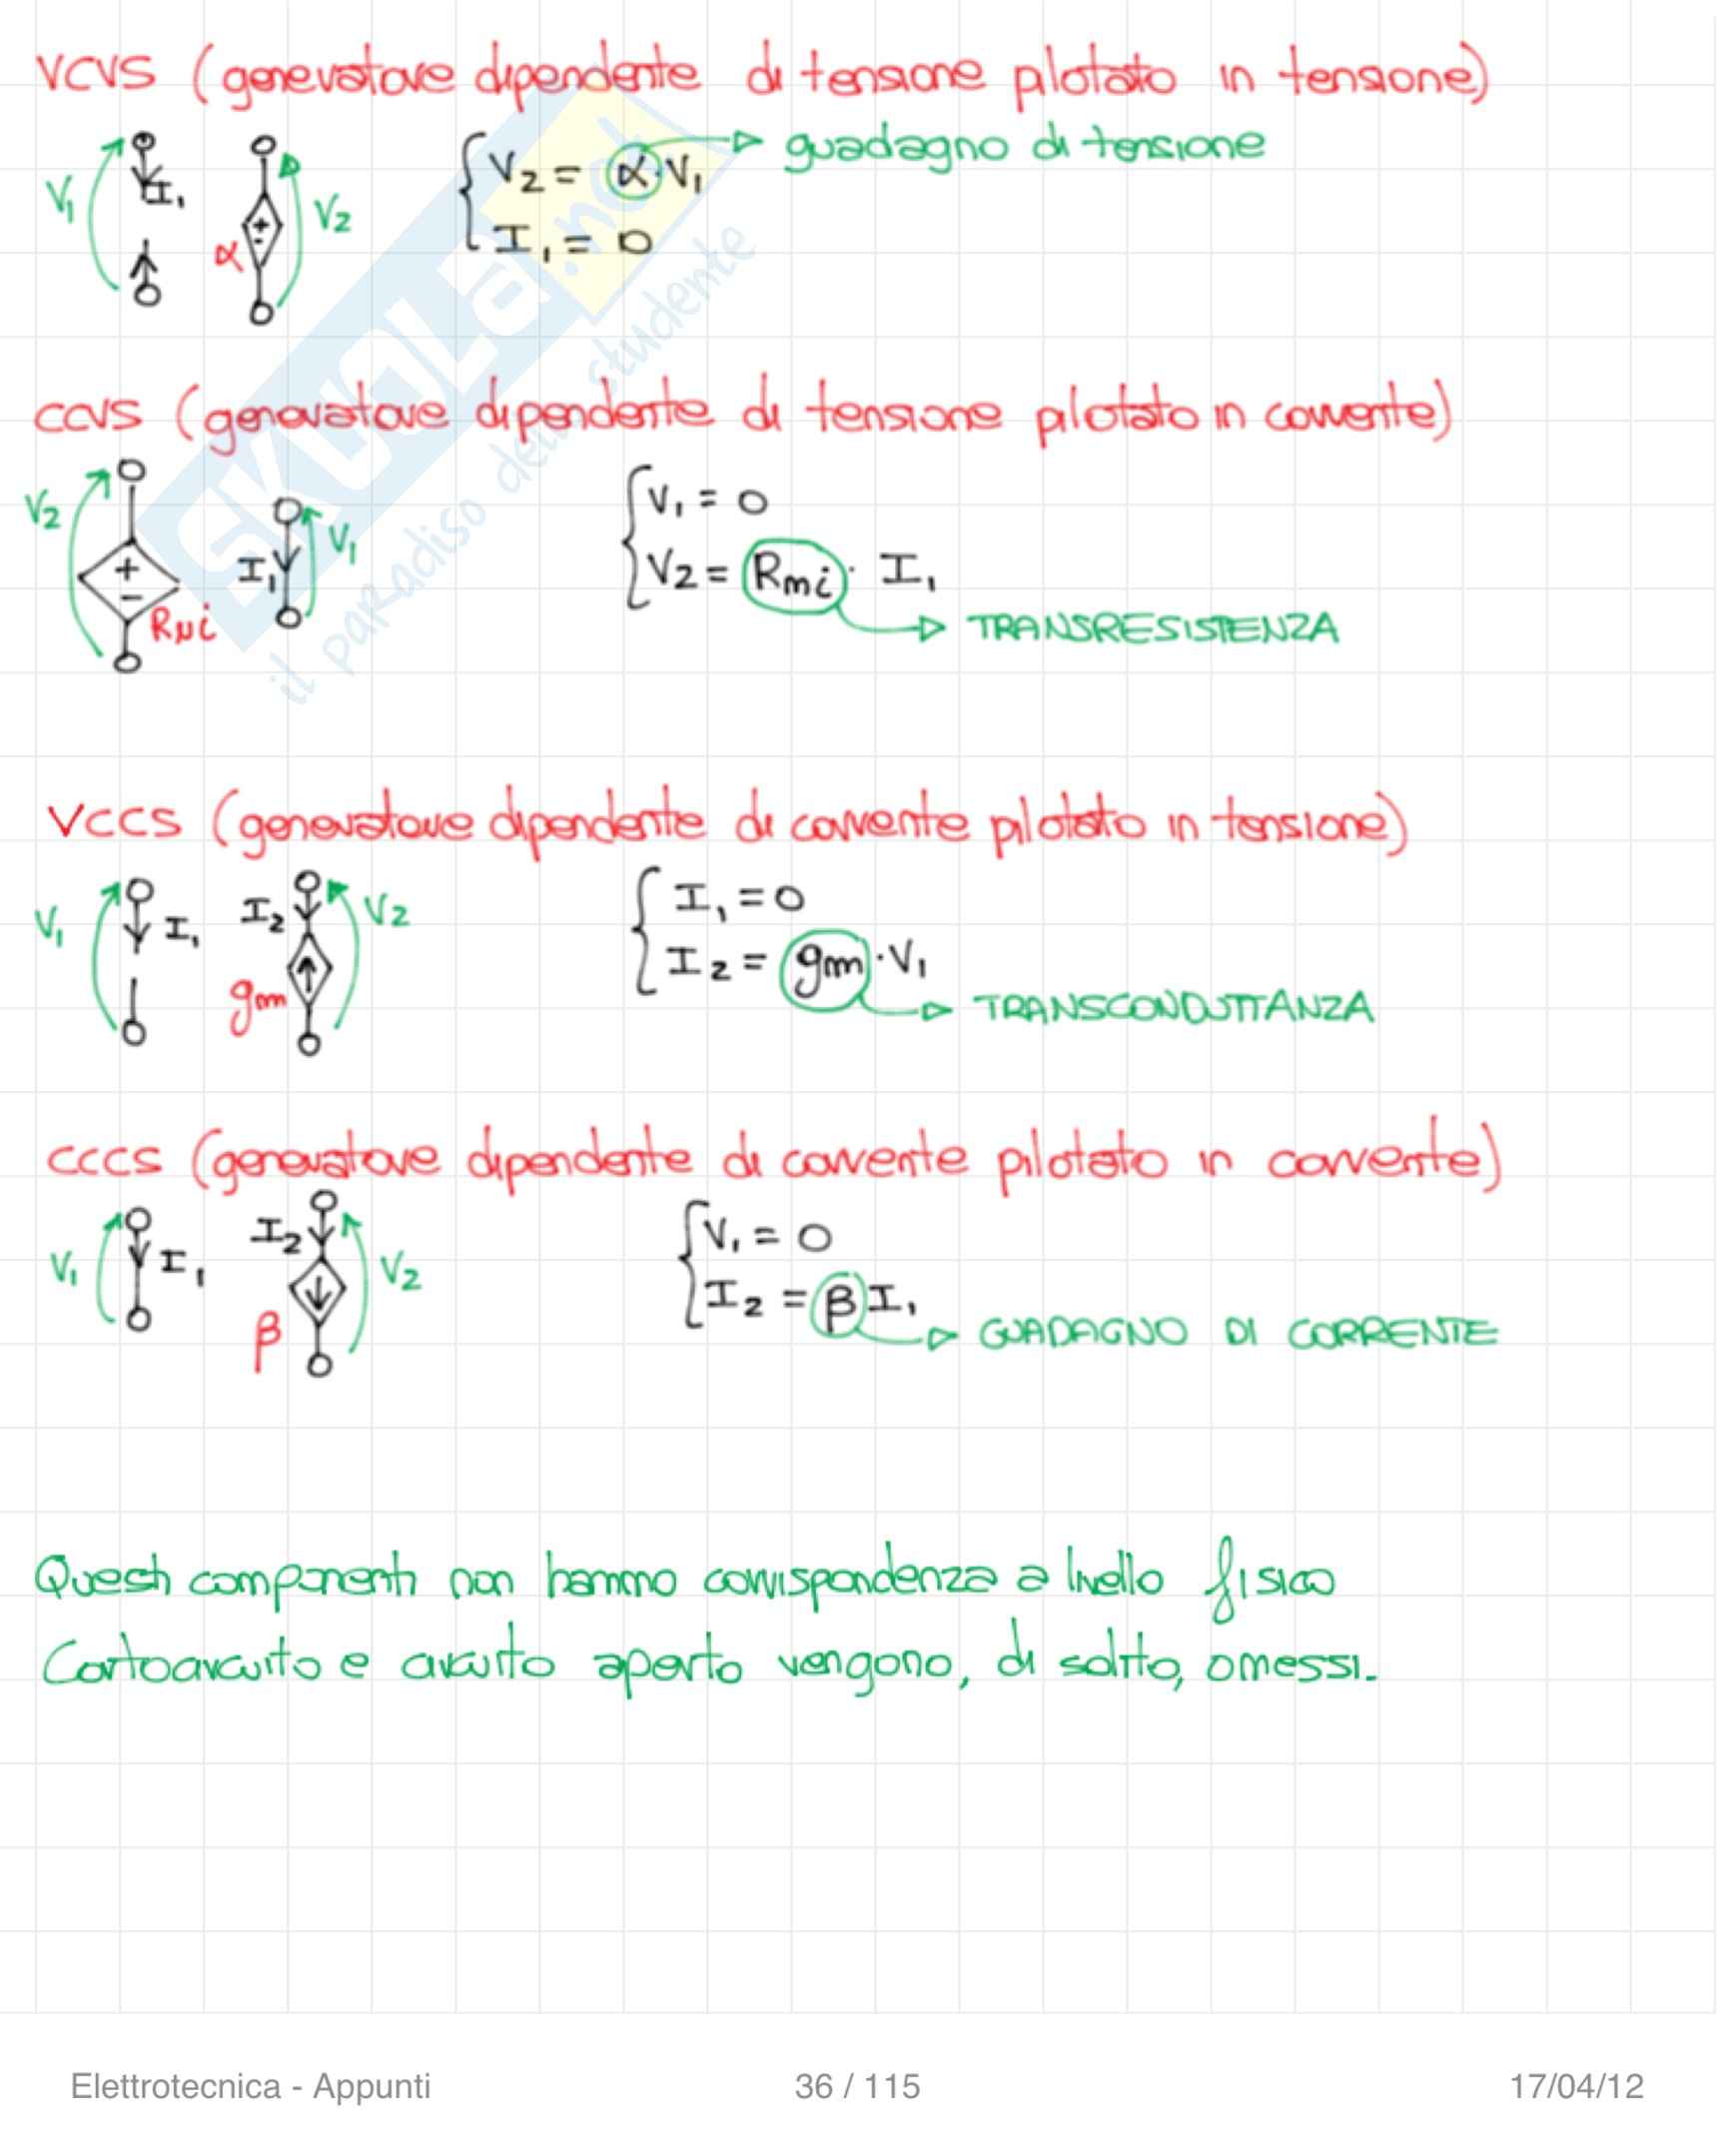 VCVS (generatore dipendente di tensione pilotato in tensione)
V1 I1 α + - V2
V2 = α · V1 → guadagno di tensione
I1 = 0
CCVS (generatore dipendente di tensione pilotato in corrente)
V2 + - Rmi I1 V1
V1 = 0
V2 = Rmi · I1
TRANSRESISTENZA
VCCS (generatore dipendente di corrente pilotato in tensione)
V1 I1 I2 gm V2
I1 = 0
I2 = gm · V1
TRANSCONDUTTANZA
CCCS (generatore dipendente di corrente pilotato in corrente)
V1 I1 I2 β V2
V1 = 0
I2 = β I1
GUADAGNO DI CORRENTE
Questi componenti non hanno corrispondenza a livello fisico
Cortocircuito e circuito aperto vengono, di solito, omessi.
SKUOLA.net
il paradiso dello studente
Elettrotecnica - Appunti 36 / 115 17/04/12